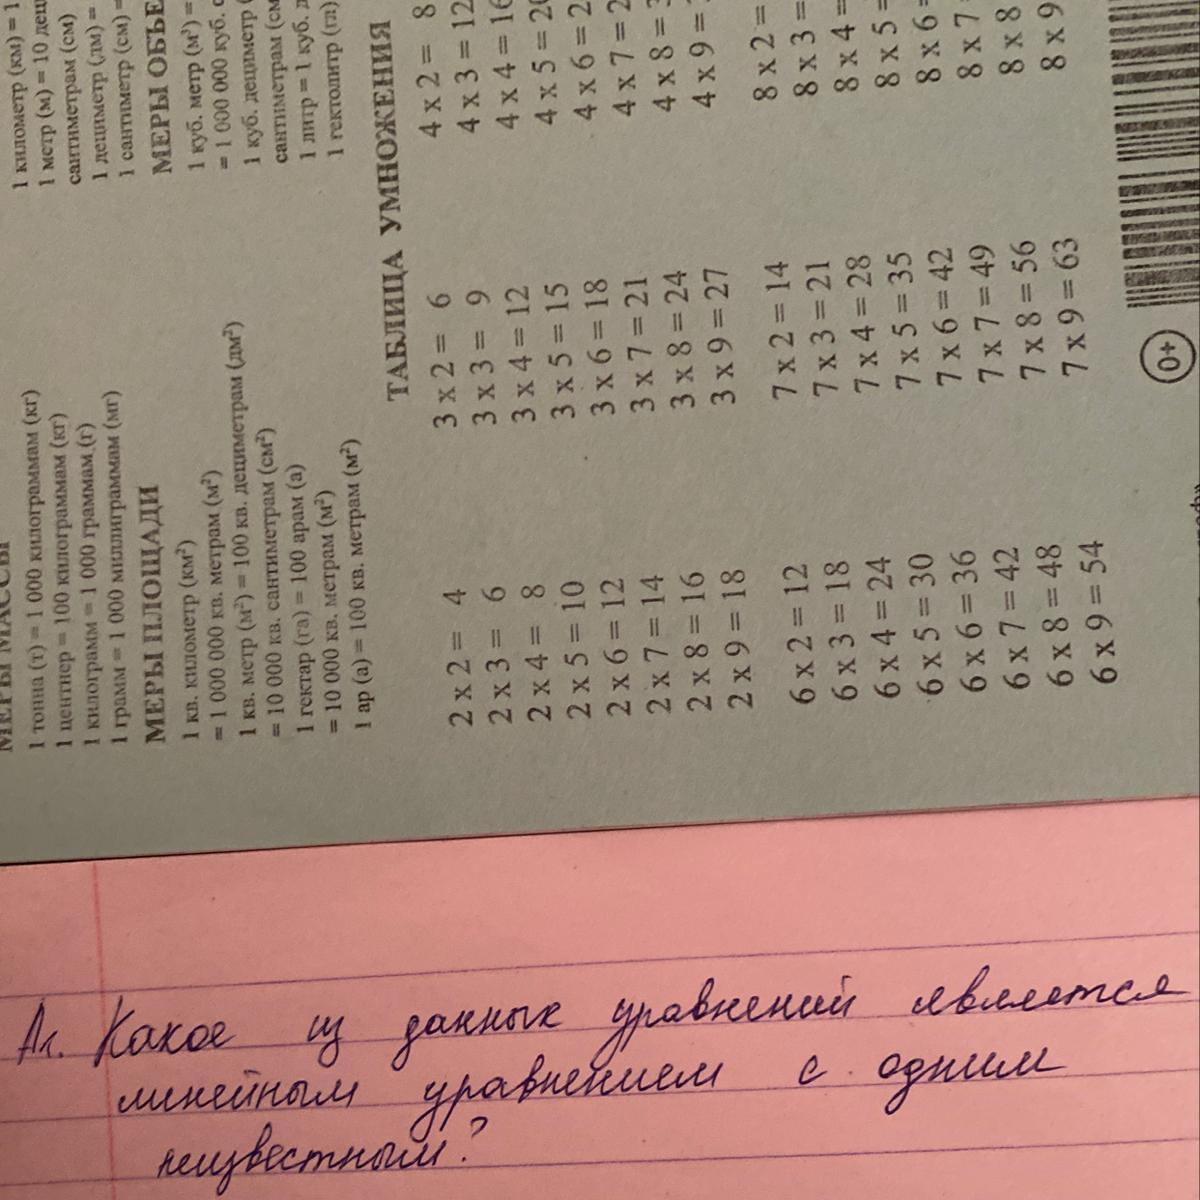 МЕРЫ МАССЫ
1 тонна (т) = 1 000 килограммам (кг)
1 центнер = 100 килограммам (кг)
1 килограмм = 1 000 граммам (г)
1 грамм = 1 000 миллиграммам (мг)
МЕРЫ ПЛОЩАДИ
1 кв. километр (км²)
= 1 000 000 кв. метрам (м²)
1 кв. метр (м²) = 100 кв. дециметрам (дм²)
= 10 000 кв. сантиметрам (см²)
1 гектар (га) = 100 арам (а)
= 10 000 кв. метрам (м²)
1 ар (а) = 100 кв. метрам (м²)
1 километр (км) = 1
1 метр (м) = 10
сантиметрам (см)
1 дециметр (дм) =
1 сантиметр (см) =
МЕРЫ
1 куб. метр (м³) =
= 1 000 000 куб.
1 куб. дециметр
сантиметрам
1 литр = 1 куб.
1 гектолитр (гл)
ТАБЛИЦА УМНОЖЕНИЯ
2 x 2 = 4
2 x 3 = 6
2 x 4 = 8
2 x 5 = 10
2 x 6 = 12
2 x 7 = 14
2 x 8 = 16
2 x 9 = 18
3 x 2 = 6
3 x 3 = 9
3 x 4 = 12
3 x 5 = 15
3 x 6 = 18
3 x 7 = 21
3 x 8 = 24
3 x 9 = 27
4 x 2 = 8
4 x 3 = 12
4 x 4 = 16
4 x 5 = 20
4 x 6 = 2
4 x 7 = 2
4 x 8 =
4 x 9 =
6 x 2 = 12
6 x 3 = 18
6 x 4 = 24
6 x 5 = 30
6 x 6 = 36
6 x 7 = 42
6 x 8 = 48
6 x 9 = 54
7 x 2 = 14
7 x 3 = 21
7 x 4 = 28
7 x 5 = 35
7 x 6 = 42
7 x 7 = 49
7 x 8 = 56
7 x 9 = 63
8 x 2 =
8 x 3 =
8 x 4 =
8 x 5 =
8 x 6 =
8 x 7
8 x 8
8 x 9
0+
А1. Какое из данных уравнений является
линейным уравнением с одним
неизвестным?